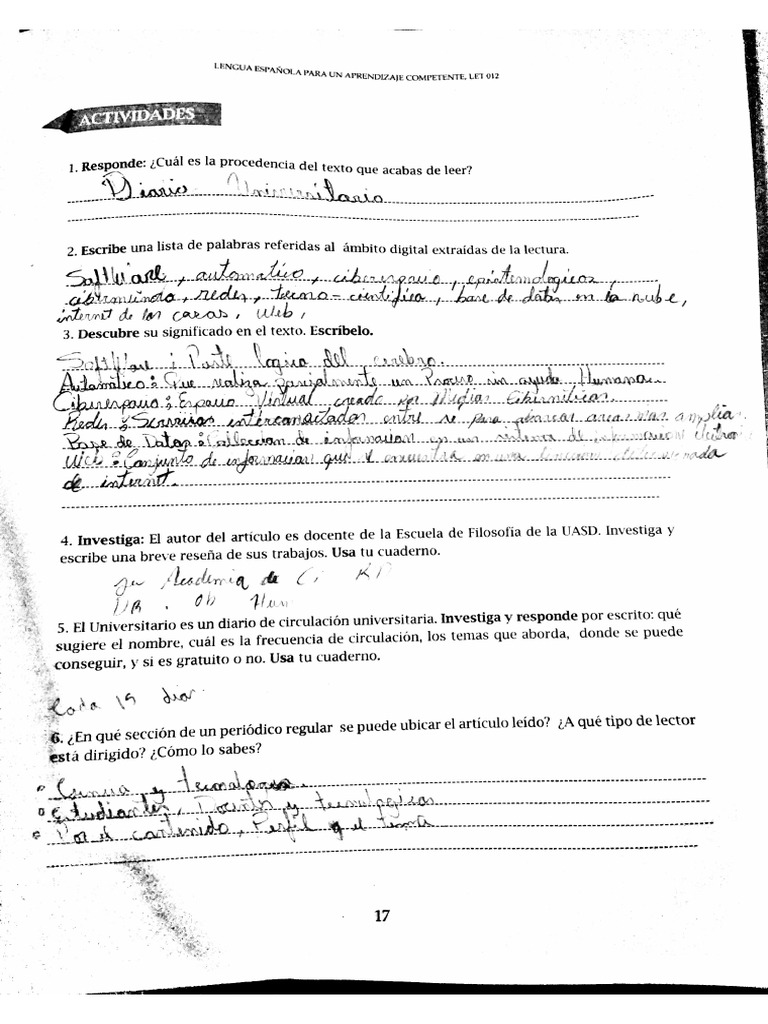 LENGUA ESPAÑOLA PARA UN APRENDIZAJE COMPETENTE, LET 012
ACTIVIDADES
1. Responde: ¿Cuál es la procedencia del texto que acabas de leer?
Diario Universitario
2. Escribe una lista de palabras referidas al ámbito digital extraídas de la lectura.
Software, automatico, ciberespacio, epistemologicos,
cibermundo, redes, tecno-cientifica, base de datos en la nube,
internet de las cosas, Web,
3. Descubre su significado en el texto. Escríbelo.
Software: Parte logica del cerebro.
Automatico: Que realiza parcialmente un Proceso sin ayuda Humana.
Ciberespacio: Espacio Virtual creado por Medios Ciberneticos.
Redes: Servicios interconectados entre si para abarcar areas mas amplia
Base de Datos: Coleccion de informacion en un sistema de
Web: Conjunto de informacion que se encuentra en una determinada
de internet.
4. Investiga: El autor del artículo es docente de la Escuela de Filosofía de la UASD. Investiga y
escribe una breve reseña de sus trabajos. Usa tu cuaderno.
Academia de
5. El Universitario es un diario de circulación universitaria. Investiga y responde por escrito: qué
sugiere el nombre, cuál es la frecuencia de circulación, los temas que aborda, donde se puede
conseguir, y si es gratuito o no. Usa tu cuaderno.
Cada 15 dias.
6. ¿En qué sección de un periódico regular se puede ubicar el artículo leído? ¿A qué tipo de lector
está dirigido? ¿Cómo lo sabes?
Ciencia y tecnologia.
Estudiantes, Docentes y tecnologicos
Por el contenido, Perfil y el tema
17